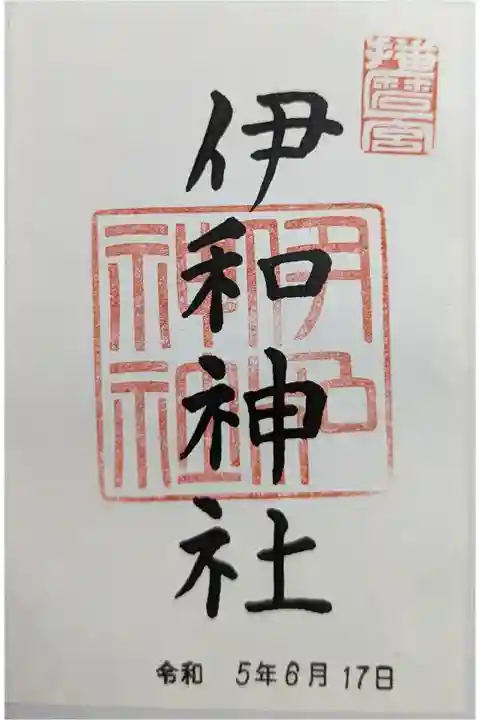 播磨一宮
伊和神社
伊和神社
令和 5年6月17日